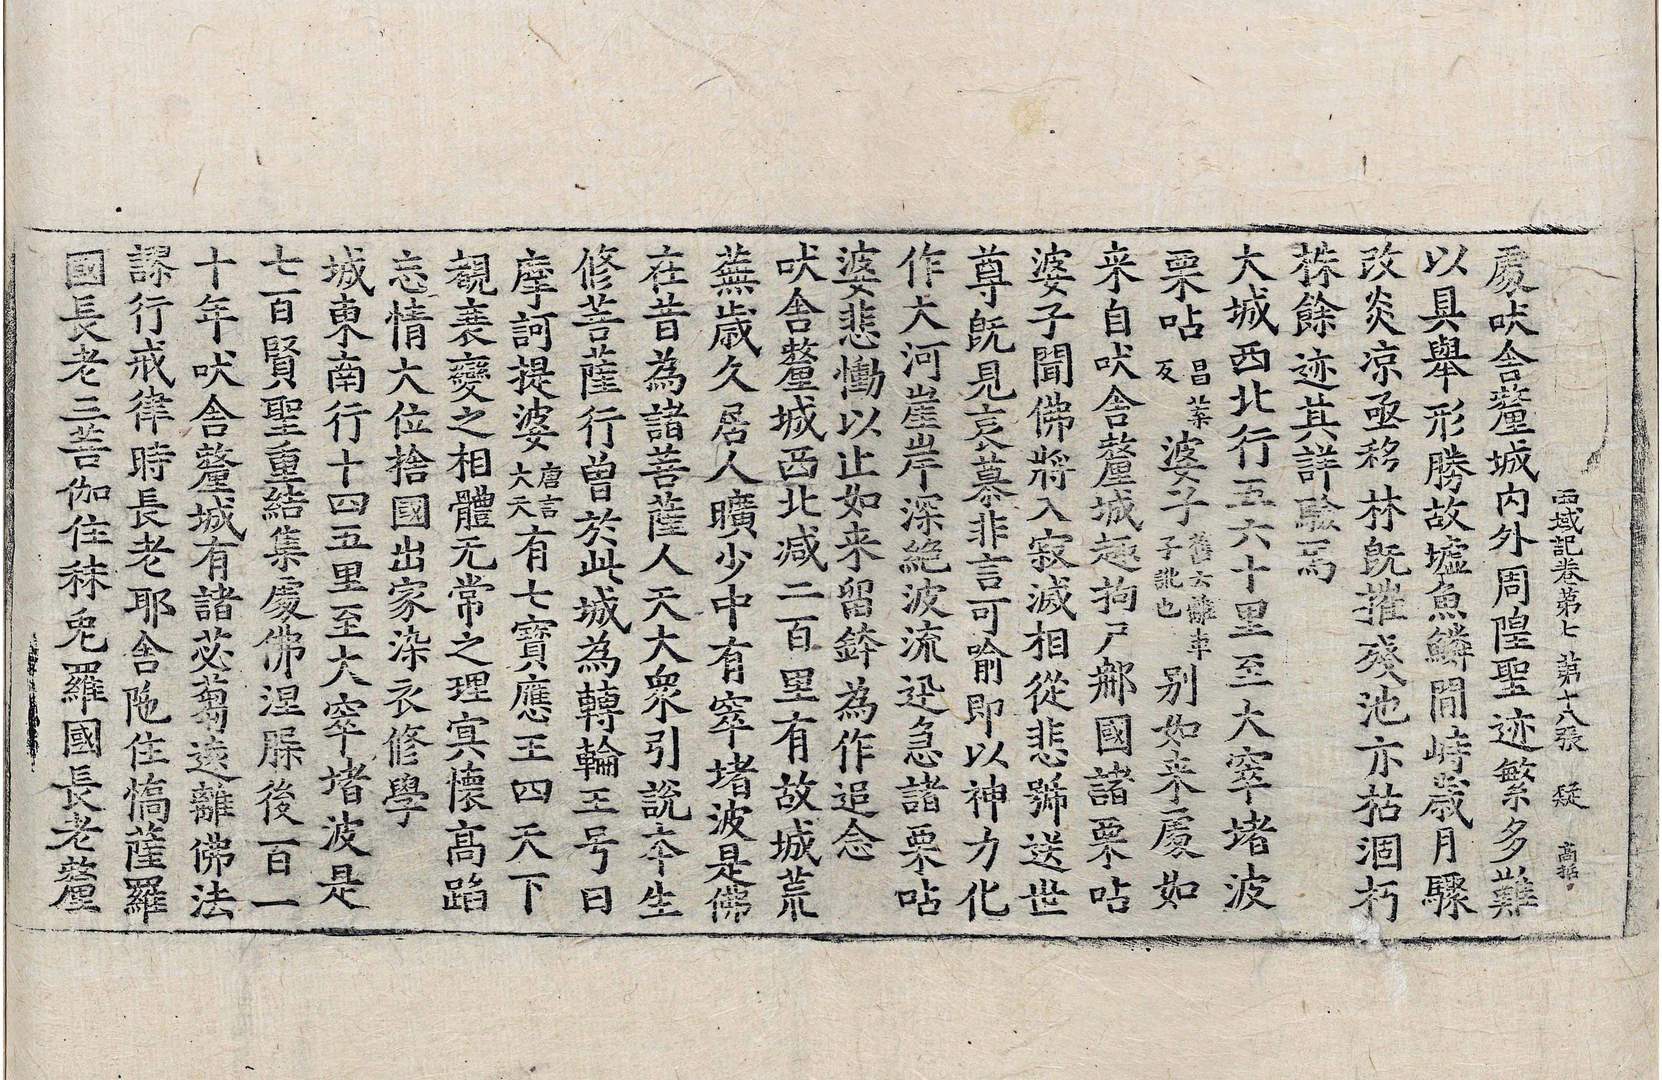 西域記卷第七 第十八張 疑
處吠舍釐城內外周隍聖迹繁多難
以具舉形勝故墟魚鱗間峙歲月驟
改炎凉亟移林既摧殘池亦枯涸朽
株餘迹其詳驗焉
大城西北行五六十里至大窣堵波
栗呫昌葉反婆子舊云離車子訛也別如来處如
来自吠舍釐城趣拘尸那國諸栗呫
婆子聞佛將入寂滅相從悲號送世
尊既見哀慕非言可喻即以神力化
作大河崖岸深絶波流迅急諸栗呫
婆悲慟以止如来留鉢為作追念
吠舍釐城西北减二百里有故城荒
蕪歲久居人曠少中有窣堵波是佛
在昔為諸菩薩人天大衆引說夲生
修菩薩行曽於此城為轉輪王号曰
摩訶提婆唐言大天有七寶應王四天下
覩衰變之相體无常之理冥懷高蹈
忘情大位捨國出家染衣修學
城東南行十四五里至大窣堵波是
七百賢聖重結集處佛涅槃後百一
十年吠舍釐城有諸苾蒭遠離佛法
謬行戒律時長老耶舍陁住憍薩羅
國長老三菩伽住秣兎羅國長老釐